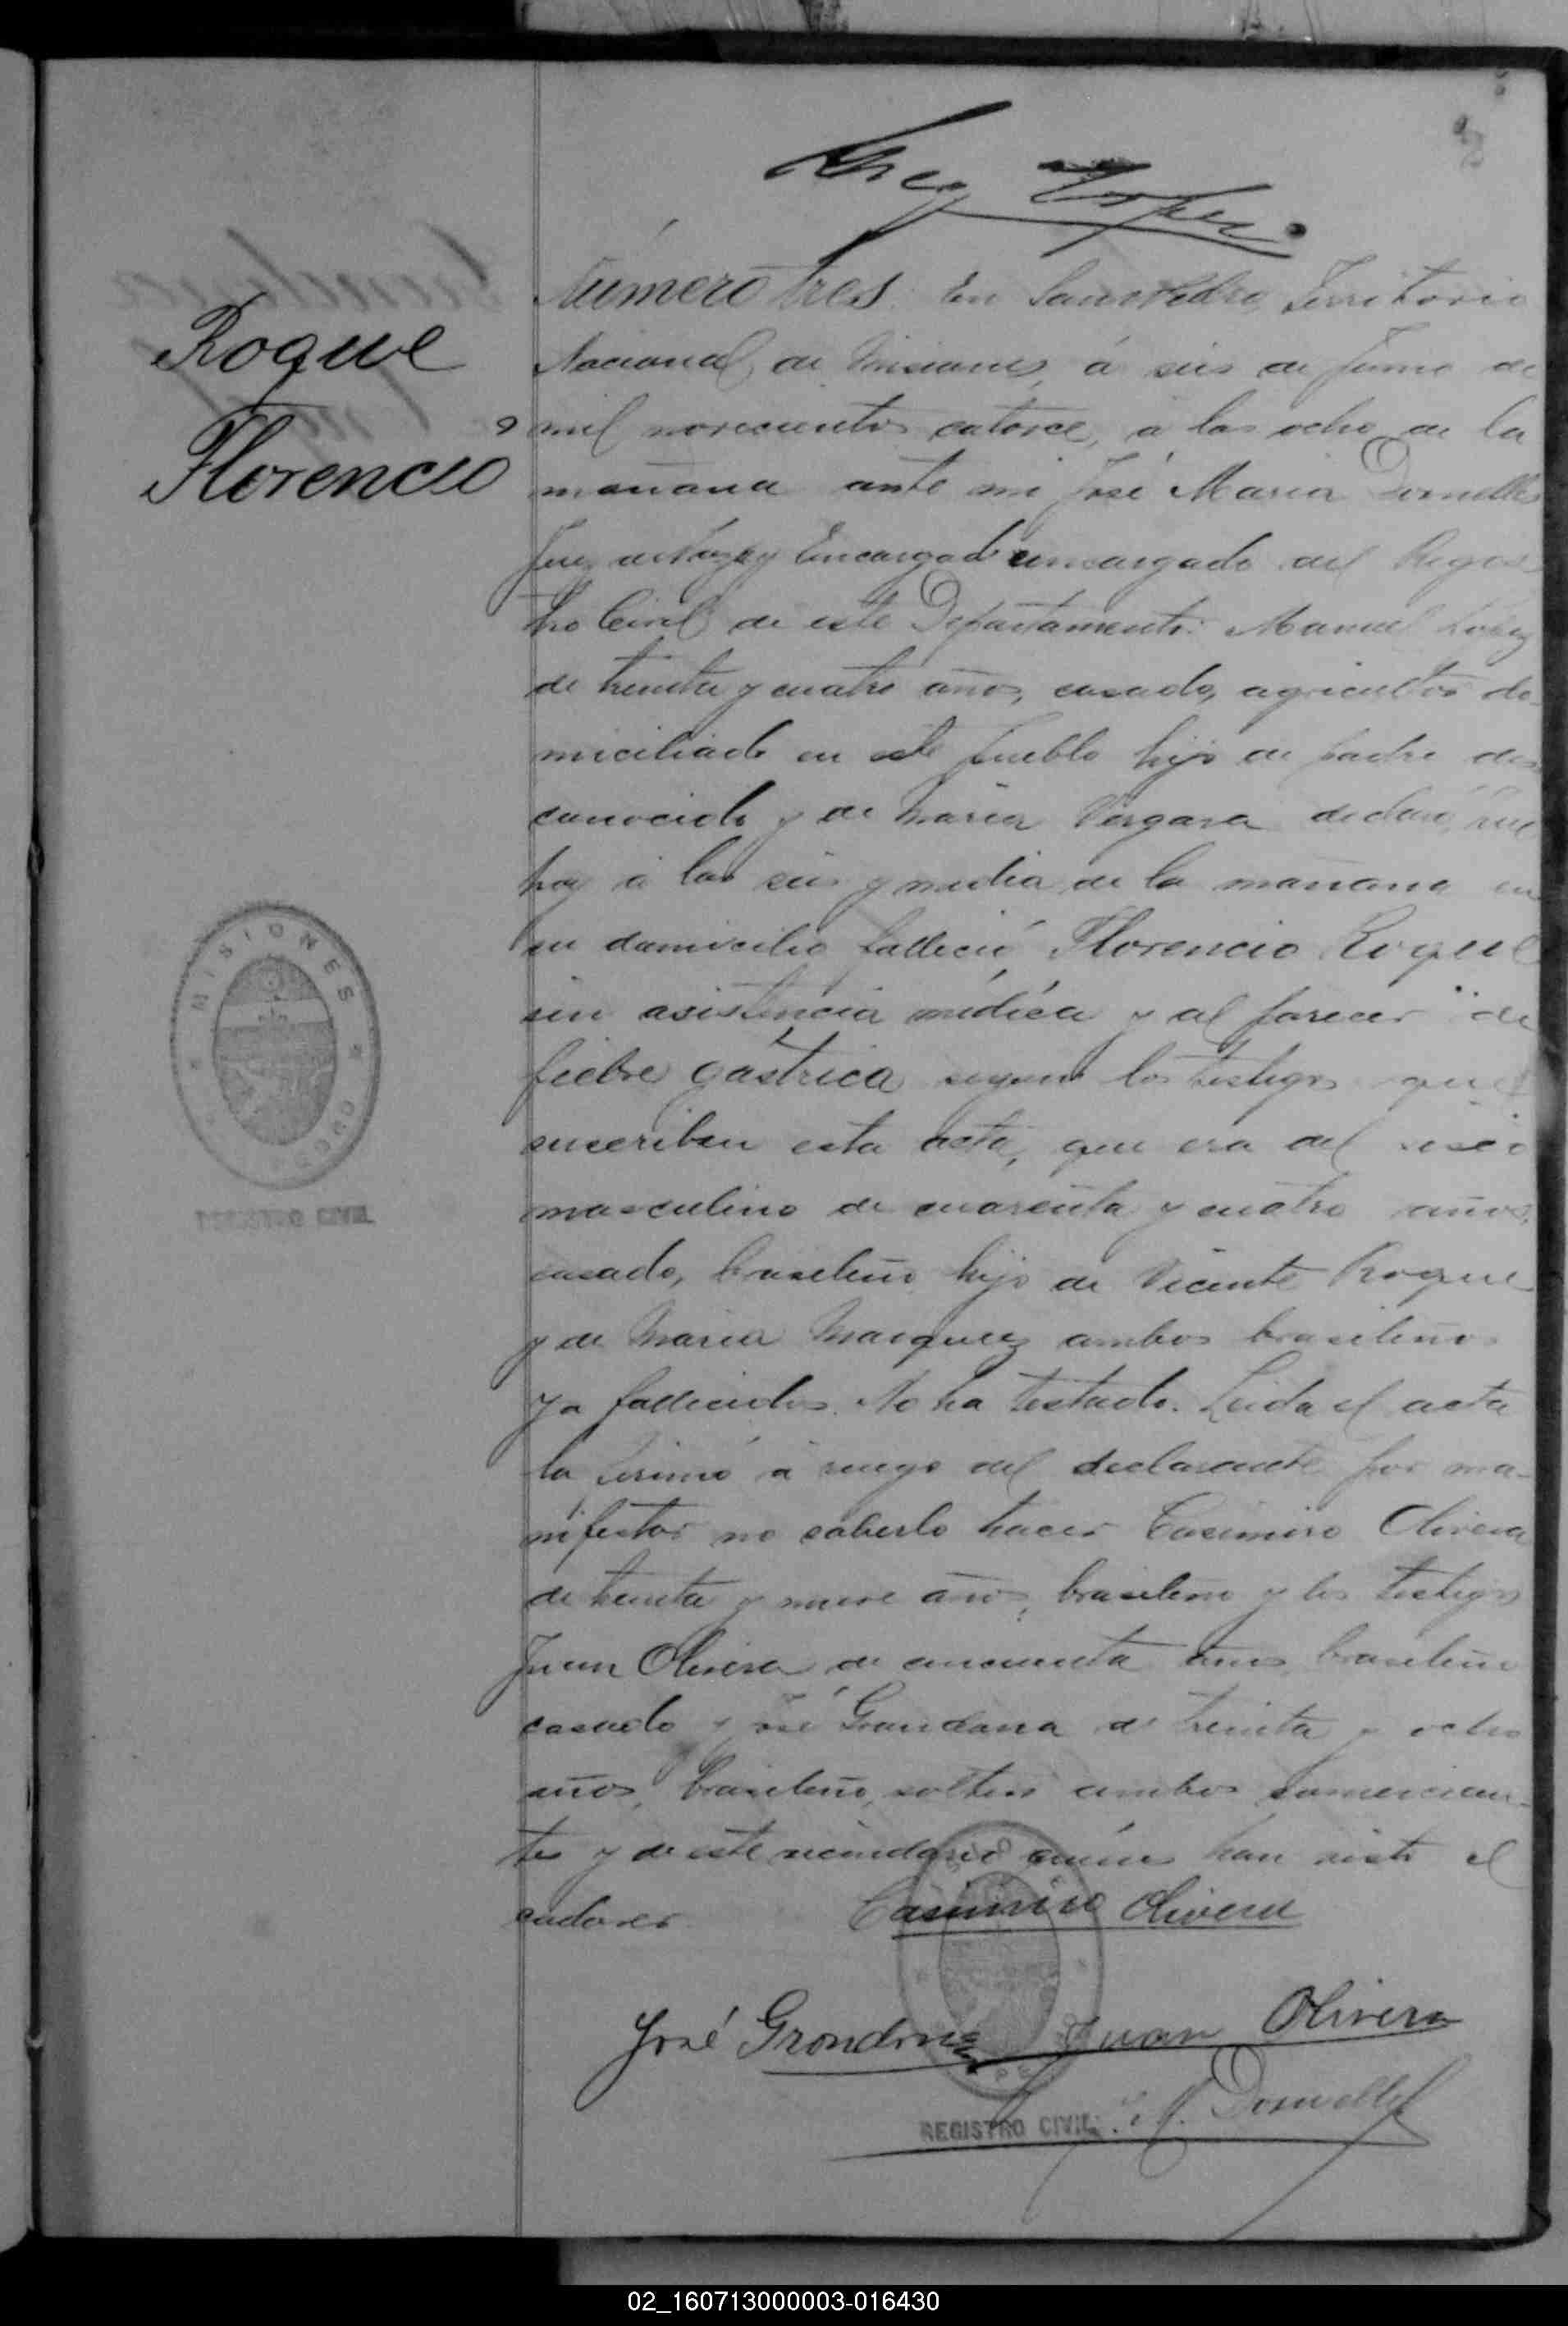 Roque
Florencio
Número tres. En San Pedro, Territorio
Nacional de Misiones, á seis de Junio de
mil novecientos catorce, á las ocho de la
mañana ante mi José Maria Dornelles
Juez de Paz y Encargado encargado del Regis
tro Civil de este Departamento: Manuel Lopez
de treinta y cuatro años, casado, agricultor do-
miciliado en este pueblo hijo de padre des
conocido y de Maria Vergara declaró que
hoy á las seis y media de la mañana en
su domicilio falleció Florencio Roque
sin asistencia médica y al parecer de
fiebre gástrica segun los testigos que
suscriben esta acta, que era del sexo
masculino de cuarenta y cuatro años,
casado, brasileño hijo de Vicente Roque
y de Maria Marquez ambos brasileños
ya fallecidos. No ha testado. Leida el acta
la firmó á ruego del declarante por ma-
nifestar no saberlo hacer Casimiro Olivera
de treinta y nueve años, brasileño y los testigos
Juan Olivera de cincuenta años brasileño
casado y José Grondona de treinta y ocho
años, brasileño, soltero ambos comercian-
tes y de este vecindario quienes han visto el
cadaver
Casimiro Olivera
José Grondona Juan Olivera
J. M. Dornelles
MISIONES
REGISTRO CIVIL
REGISTRO CIVIL
02_160713000003-016430